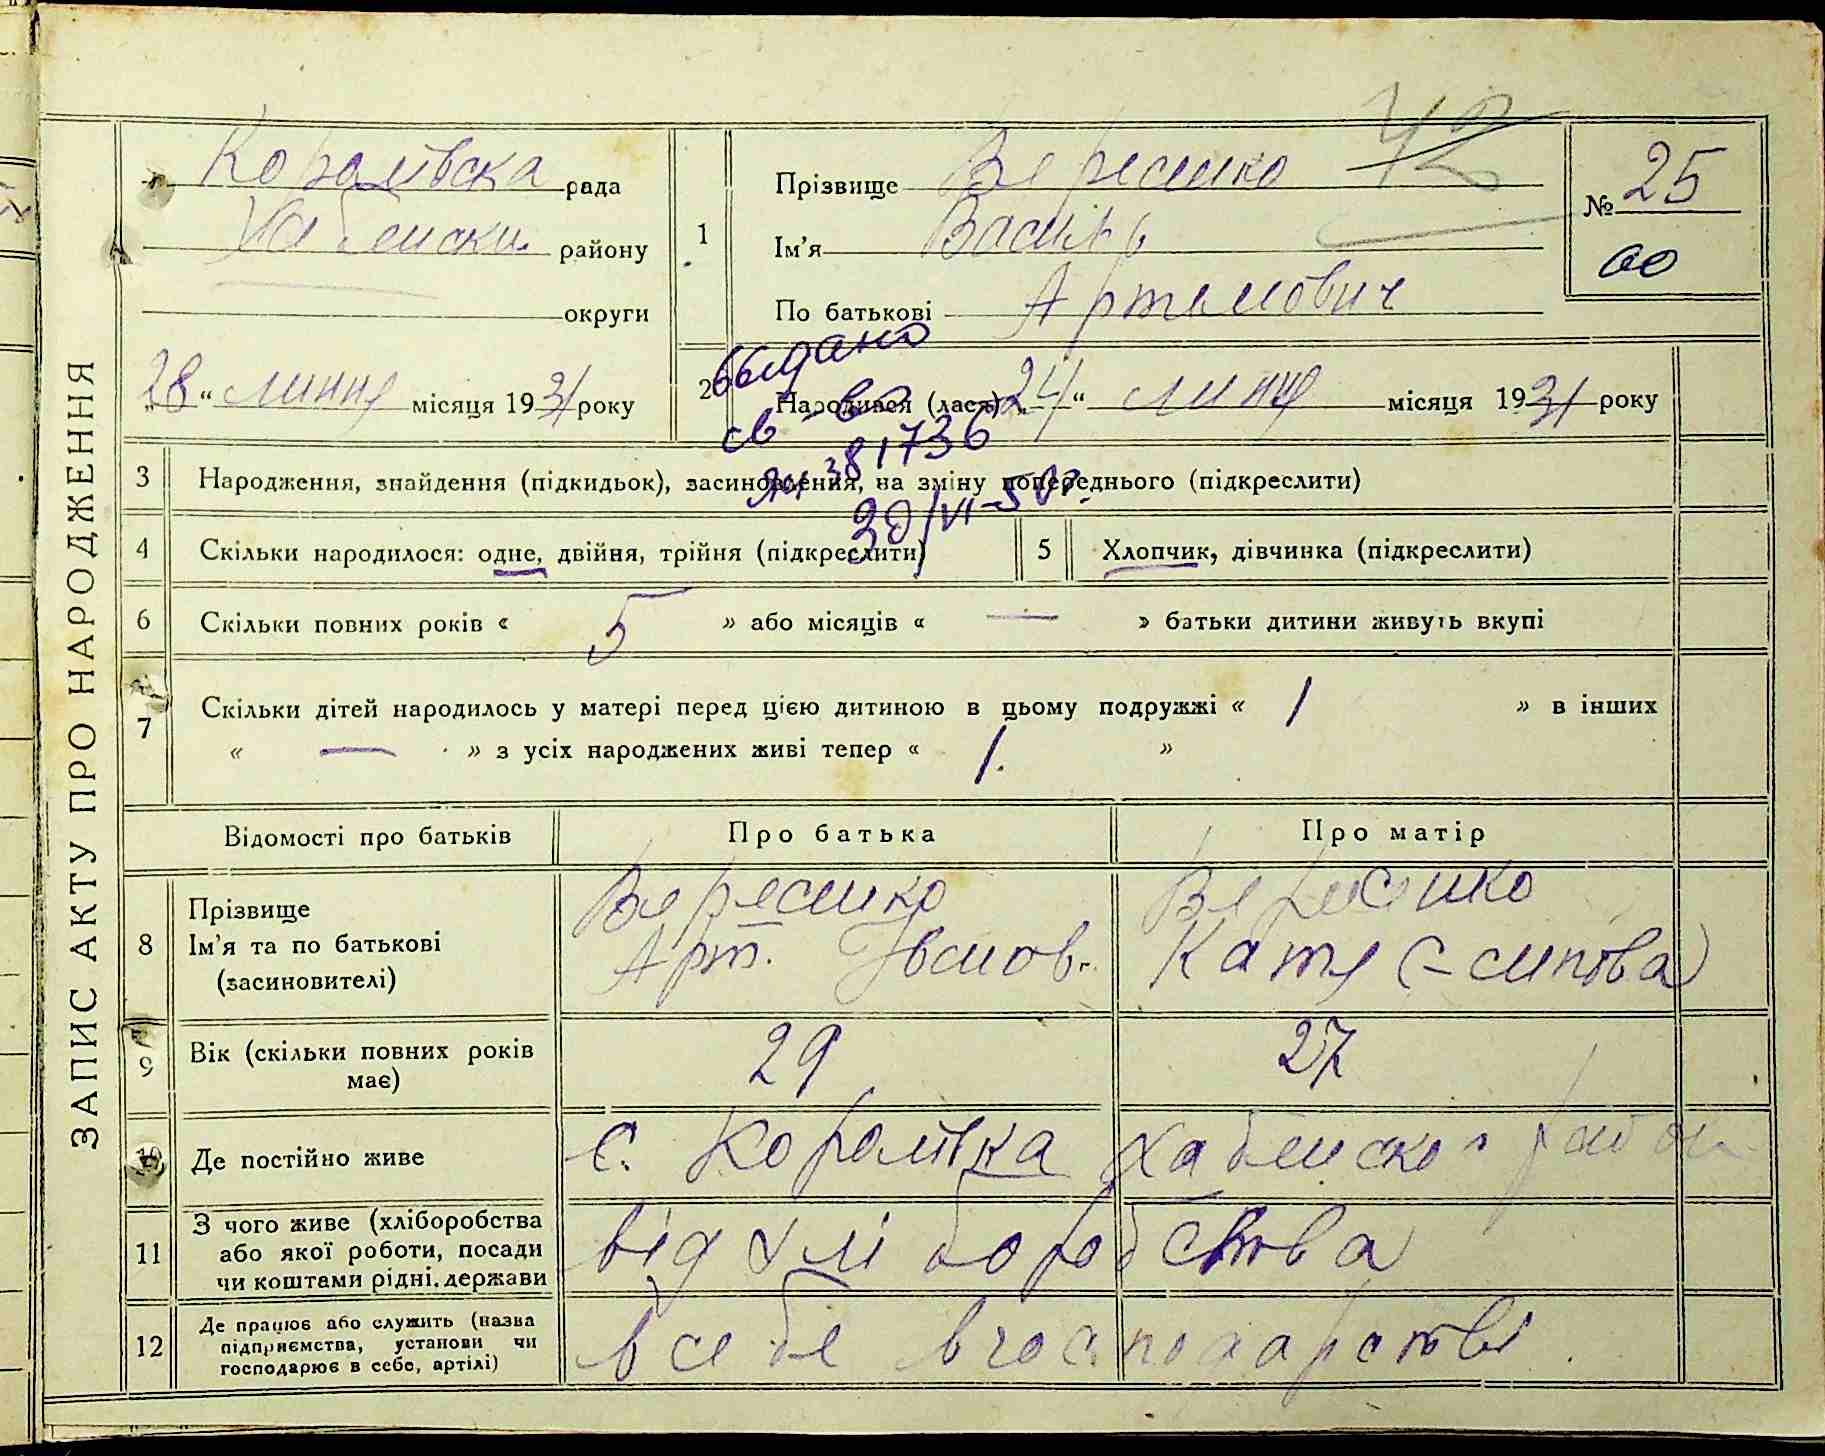 ЗАПИС АКТУ ПРО НАРОДЖЕННЯ
рада
району
округи
„28“ липня місяця 1931 року
1
Прізвище Вересенко
Ім'я Василь
По батькові Артемович
№ 25
2
Народився (лася) „24“ липня місяця 1931 року
выдано
св-во
381736
30/VI-50г.
3 Народження, знайдення (підкидьок), засиновлення, на зміну попереднього (підкреслити)
4 Скільки народилося: одне, двійня, трійня (підкреслити)
5 Хлопчик, дівчинка (підкреслити)
6 Скільки повних років « 5 » або місяців « — » батьки дитини живуть вкупі
7 Скільки дітей народилось у матері перед цією дитиною в цьому подружжі « 1 » в інших
« — » з усіх народжених живі тепер « 1. »
Відомості про батьків
Про батька
Про матір
8
Прізвище
Ім'я та по батькові
(засиновителі)
Вересенко
Арт. Іванов.
Вересенко
Катя
9
Вік (скільки повних років
має)
29
27
10 Де постійно живе
с. Королівка Хабенского район
11
З чого живе (хліборобства
або якої роботи, посади
чи коштами рідні, держави
від хліборобства
12
Де працює або служить (назва
підприємства, установи чи
господарює в себе, артілі)
в себе в господарстві